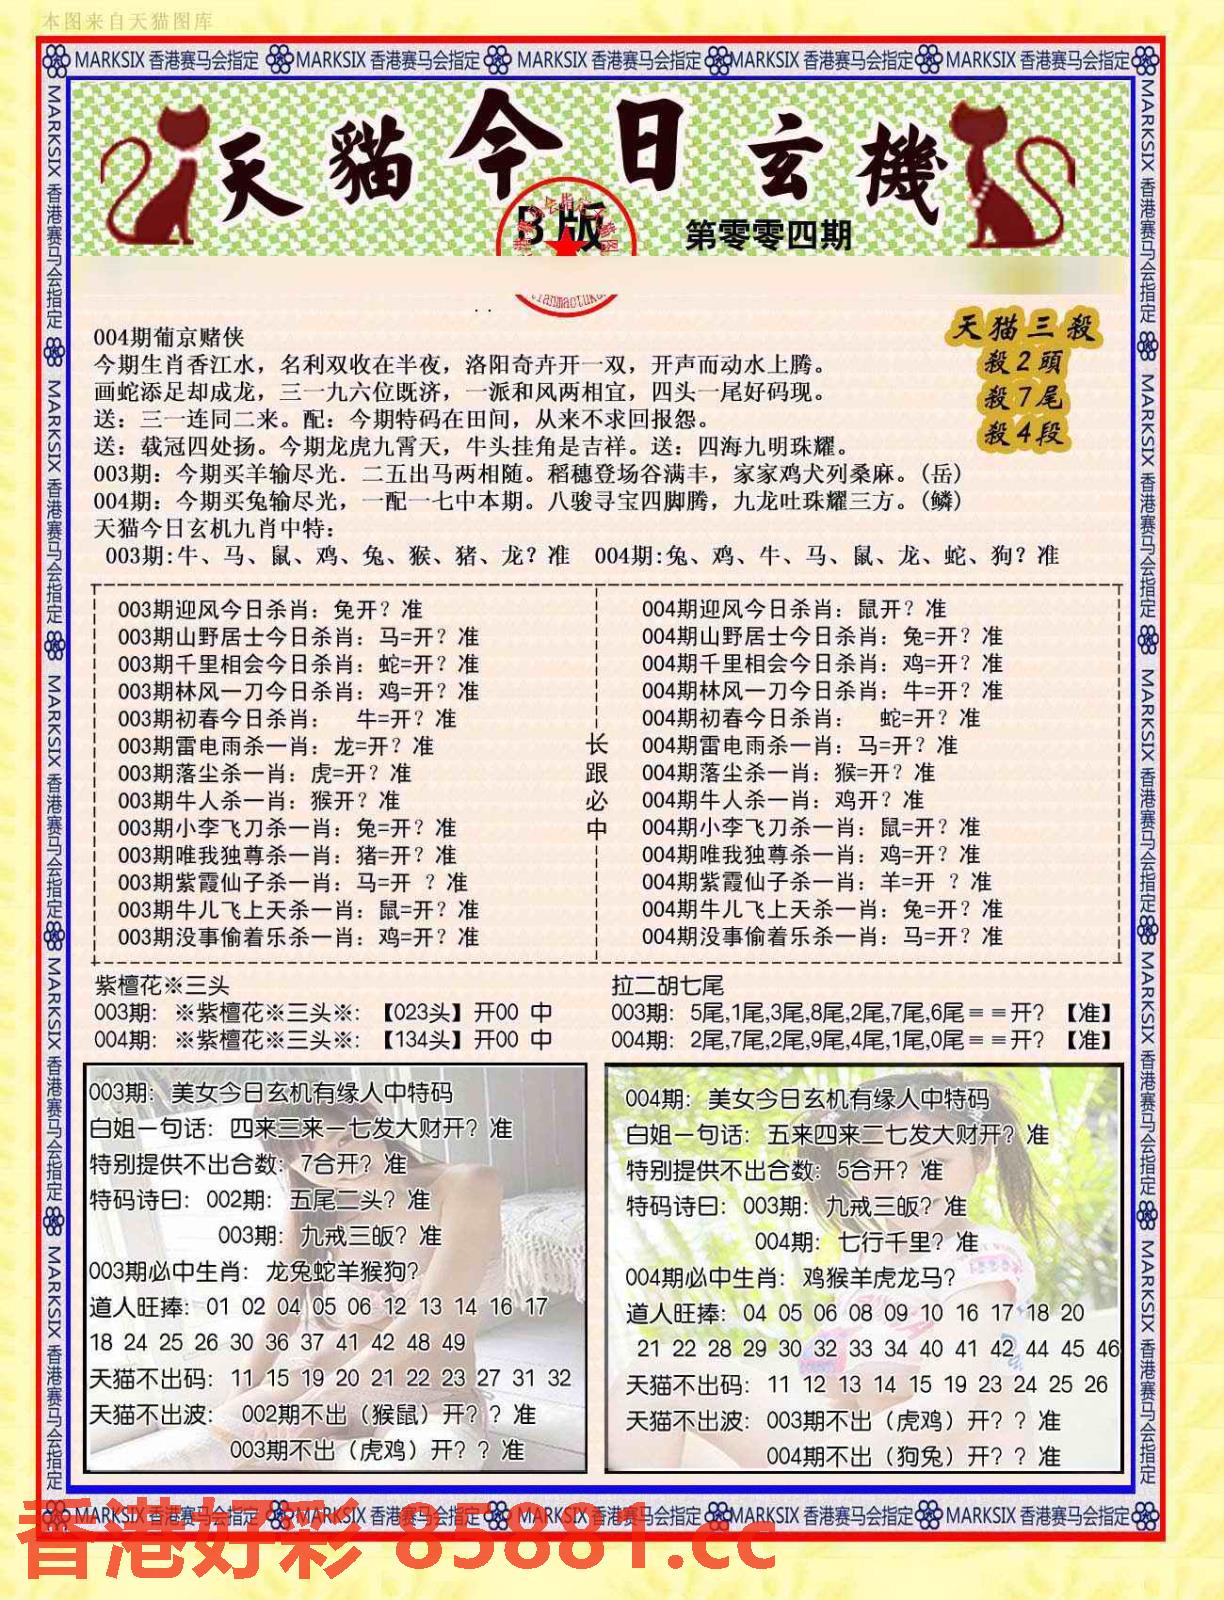 本图来自天猫图库
MARKSIX 香港赛马会指定 MARKSIX 香港赛马会指定 MARKSIX 香港赛马会指定 MARKSIX 香港赛马会指定 MARKSIX 香港赛马会指定
MARKSIX 香港赛马会指定 MARKSIX 香港赛马会指定 MARKSIX 香港赛马会指定 MARKSIX 香港赛马会指定 MARKSIX 香港赛马会指定
天猫今日玄機
B版
第零零四期
天猫三殺
殺2頭
殺7尾
殺4段
004期葡京赌侠
今期生肖香江水，名利双收在半夜，洛阳奇卉开一双，开声而动水上腾。
画蛇添足却成龙，三一九六位既济，一派和风两相宜，四头一尾好码现。
送：三一连同二来。配：今期特码在田间，从来不求回报怨。
送：载冠四处扬。今期龙虎九霄天，牛头挂角是吉祥。送：四海九明珠耀。
003期：今期买羊输尽光．二五出马两相随。稻穗登场谷满丰，家家鸡犬列桑麻。(岳)
004期：今期买兔输尽光，一配一七中本期。八骏寻宝四脚腾，九龙吐珠耀三方。(鳞)
天猫今日玄机九肖中特：
003期:牛、马、鼠、鸡、兔、猴、猪、龙？准 004期:兔、鸡、牛、马、鼠、龙、蛇、狗？准
003期迎风今日杀肖：兔开？准
003期山野居士今日杀肖：马=开？准
003期千里相会今日杀肖：蛇=开？准
003期林风一刀今日杀肖：鸡=开？准
003期初春今日杀肖： 牛=开？准
003期雷电雨杀一肖：龙=开？准
003期落尘杀一肖：虎=开？准
003期牛人杀一肖：猴开？准
003期小李飞刀杀一肖：兔=开？准
003期唯我独尊杀一肖：猪=开？准
003期紫霞仙子杀一肖：马=开 ？准
003期牛儿飞上天杀一肖：鼠=开？准
003期没事偷着乐杀一肖：鸡=开？准
长跟必中
004期迎风今日杀肖：鼠开？准
004期山野居士今日杀肖：兔=开？准
004期千里相会今日杀肖：鸡=开？准
004期林风一刀今日杀肖：牛=开？准
004期初春今日杀肖： 蛇=开？准
004期雷电雨杀一肖：马=开？准
004期落尘杀一肖：猴=开？准
004期牛人杀一肖：鸡开？准
004期小李飞刀杀一肖：鼠=开？准
004期唯我独尊杀一肖：鸡=开？准
004期紫霞仙子杀一肖：羊=开 ？准
004期牛儿飞上天杀一肖：兔=开？准
004期没事偷着乐杀一肖：马=开？准
紫檀花※三头
003期：※紫檀花※三头※:【023头】开00 中
004期：※紫檀花※三头※:【134头】开00 中
拉二胡七尾
003期：5尾,1尾,3尾,8尾,2尾,7尾,6尾＝＝开？【准】
004期：2尾,7尾,2尾,9尾,4尾,1尾,0尾＝＝开？【准】
003期：美女今日玄机有缘人中特码
白姐一句话：四来三来一七发大财开？准
特别提供不出合数：7合开？准
特码诗曰：002期：五尾二头？准
003期：九戒三皈？准
003期必中生肖：龙兔蛇羊猴狗?
道人旺捧：01 02 04 05 06 12 13 14 16 17
18 24 25 26 30 36 37 41 42 48 49
天猫不出码：11 15 19 20 21 22 23 27 31 32
天猫不出波： 002期不出（猴鼠）开？？准
003期不出（虎鸡）开？？准
004期：美女今日玄机有缘人中特码
白姐一句话：五来四来二七发大财开？准
特别提供不出合数：5合开？准
特码诗曰：003期：九戒三皈？准
004期：七行千里？准
004期必中生肖：鸡猴羊虎龙马?
道人旺捧：04 05 06 08 09 10 16 17 18 20
21 22 28 29 30 32 33 34 40 41 42 44 45 46
天猫不出码：11 12 13 14 15 19 23 24 25 26
天猫不出波：003期不出（虎鸡）开？？准
004期不出（狗兔）开？？准
MARKSIX 香港赛马会指定 MARKSIX 香港赛马会指定 MARKSIX 香港赛马会指定 MARKSIX 香港赛马会指定 MARKSIX 香港赛马会指定
MARKSIX 香港赛马会指定 MARKSIX 香港赛马会指定 MARKSIX 香港赛马会指定 MARKSIX 香港赛马会指定 MARKSIX 香港赛马会指定
香港好彩 85881.cc